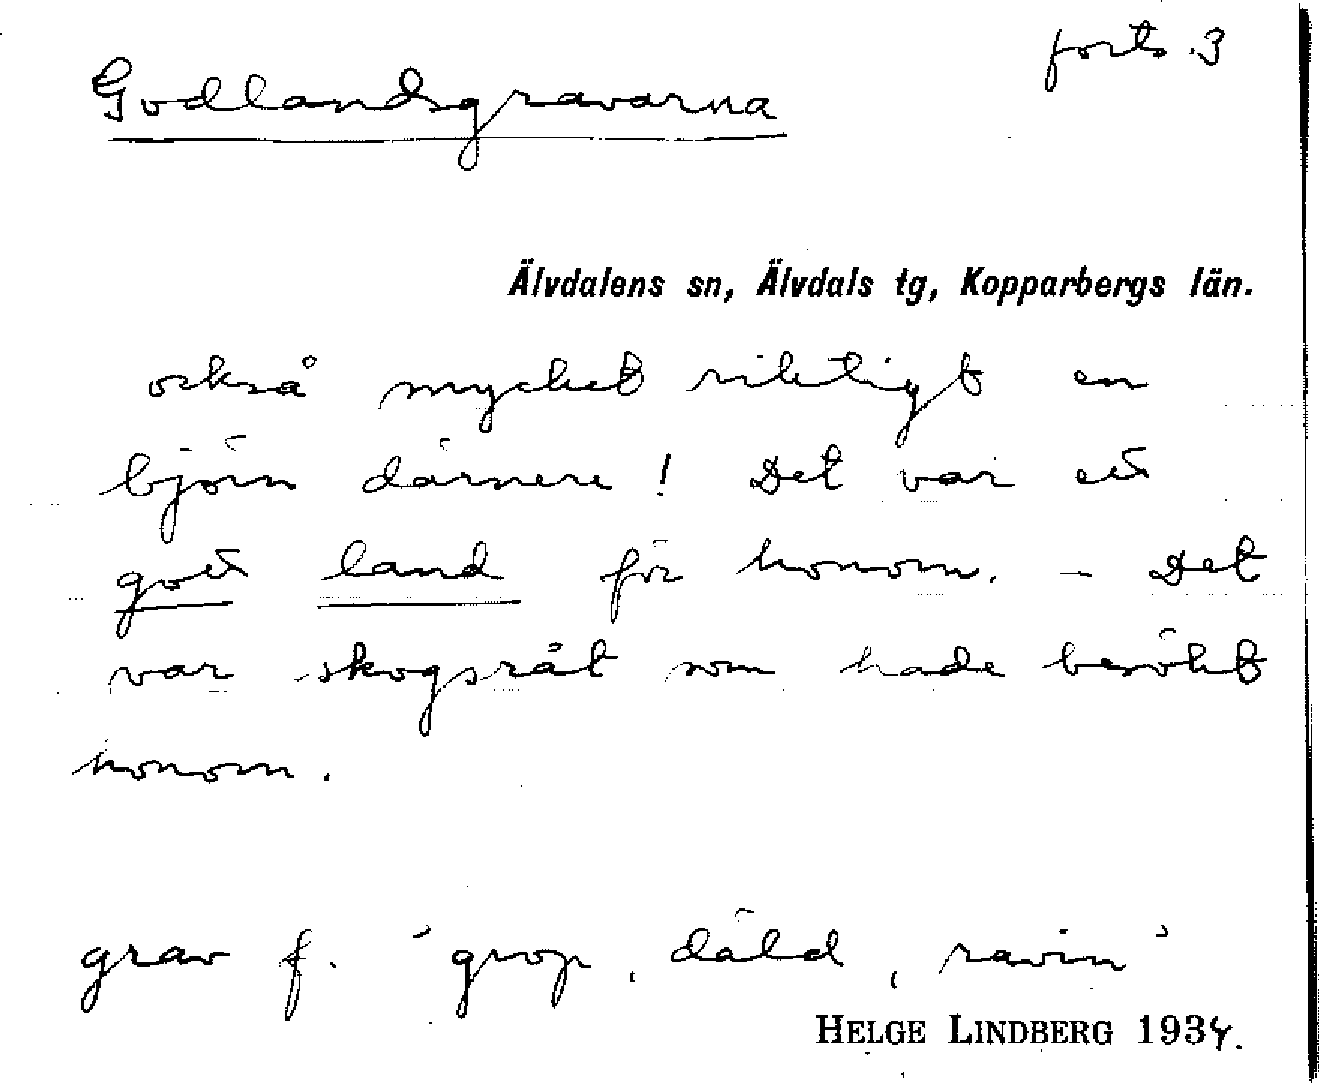 forts. 3
Godlandsgravarna
Älvdalens sn, Älvdals tg, Kopparbergs län.
också mycket riktigt en
björn därnere! Det var ett
gott land för honom. – Det
var skogsrået som hade besökt
honom.
grav f. ´grop, däld, ravin´
HELGE LINDBERG 1934.